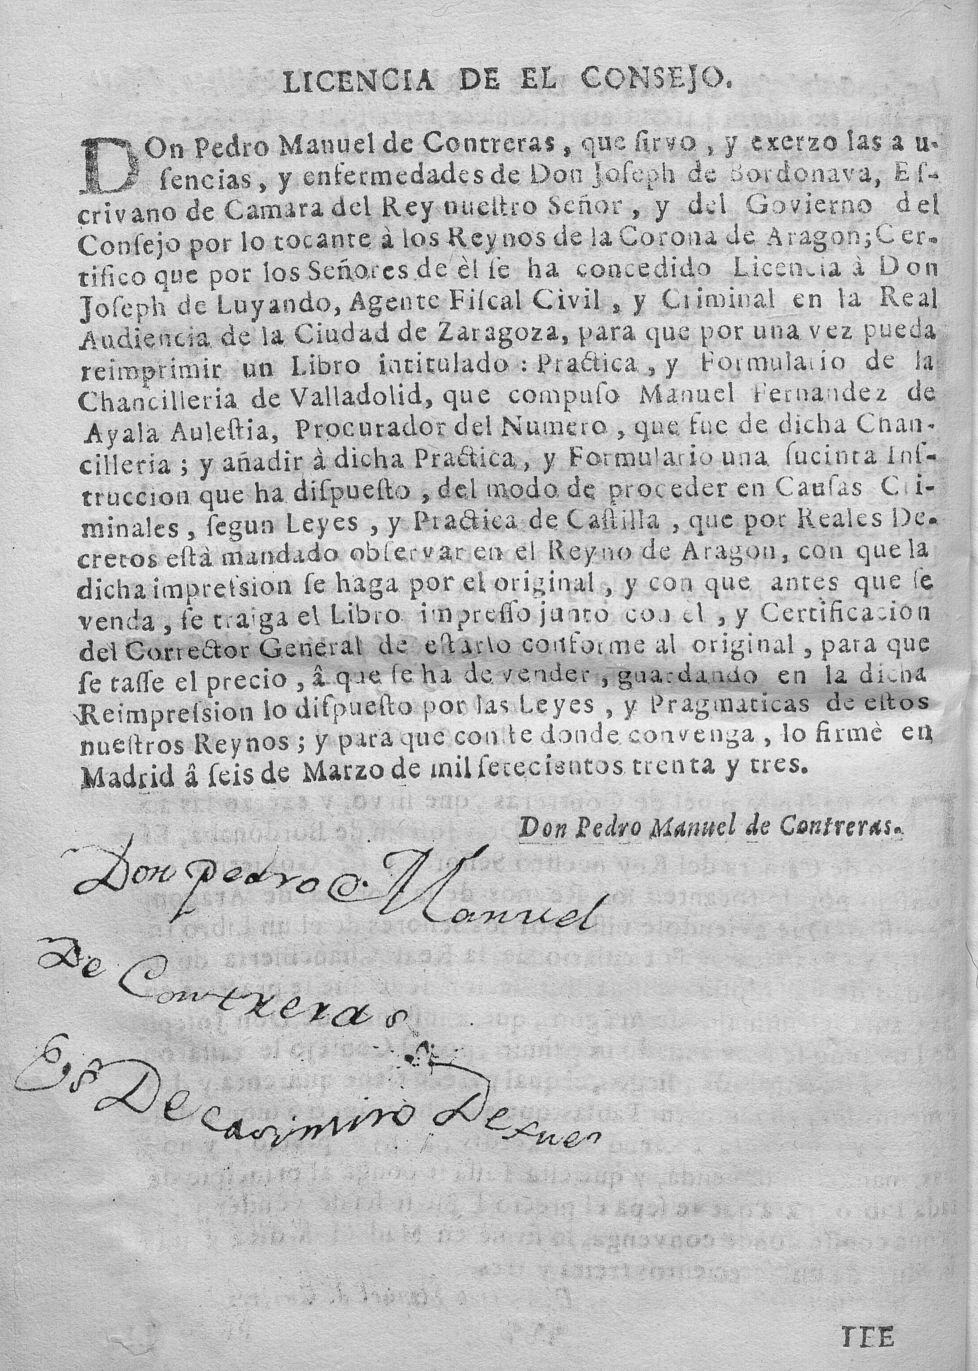 LICENCIA DE EL CONSEJO.
DOn Pedro Manuel de Contreras, que ſirvo, y exerzo las a u-
ſencias, y enfermedades de Don Joſeph de Bordonava, Eſ-
crivano de Camara del Rey nueſtro Señor, y del Govierno del
Conſejo por lo tocante à los Reynos de la Corona de Aragon; Cer-
tifico que por los Señores de èl ſe ha concedido Licencia à Don
Joſeph de Luyando, Agente Fiſcal Civil, y Criminal en la Real
Audiencia de la Ciudad de Zaragoza, para que por una vez pueda
reimprimir un Libro intitulado: Practica, y Formulario de la
Chancilleria de Valladolid, que compuſo Manuel Fernandez de
Ayala Auleſtia, Procurador del Numero, que fue de dicha Chan-
cilleria; y añadir à dicha Practica, y Formulario una ſucinta Inſ-
truccion que ha diſpueſto, del modo de proceder en Cauſas Cri-
minales, ſegun Leyes, y Practica de Caſtilla, que por Reales De-
cretos eſtà mandado obſervar en el Reyno de Aragon, con que la
dicha impreſsion ſe haga por el original, y con que antes que ſe
venda, ſe traiga el Libro impreſſo junto con el, y Certificacion
del Corrector General de eſtarlo conforme al original, para que
ſe taſſe el precio, â que ſe ha de vender, guardando en la dicha
Reimpreſsion lo diſpueſto por las Leyes, y Pragmaticas de eſtos
nueſtros Reynos; y para que conſte donde convenga, lo firmè en
Madrid â ſeis de Marzo de mil ſetecientos trenta y tres.
Don Pedro Manuel de Contreras.
Don pedro Manuel
De Contreras
Es De Casimiro De
TTE